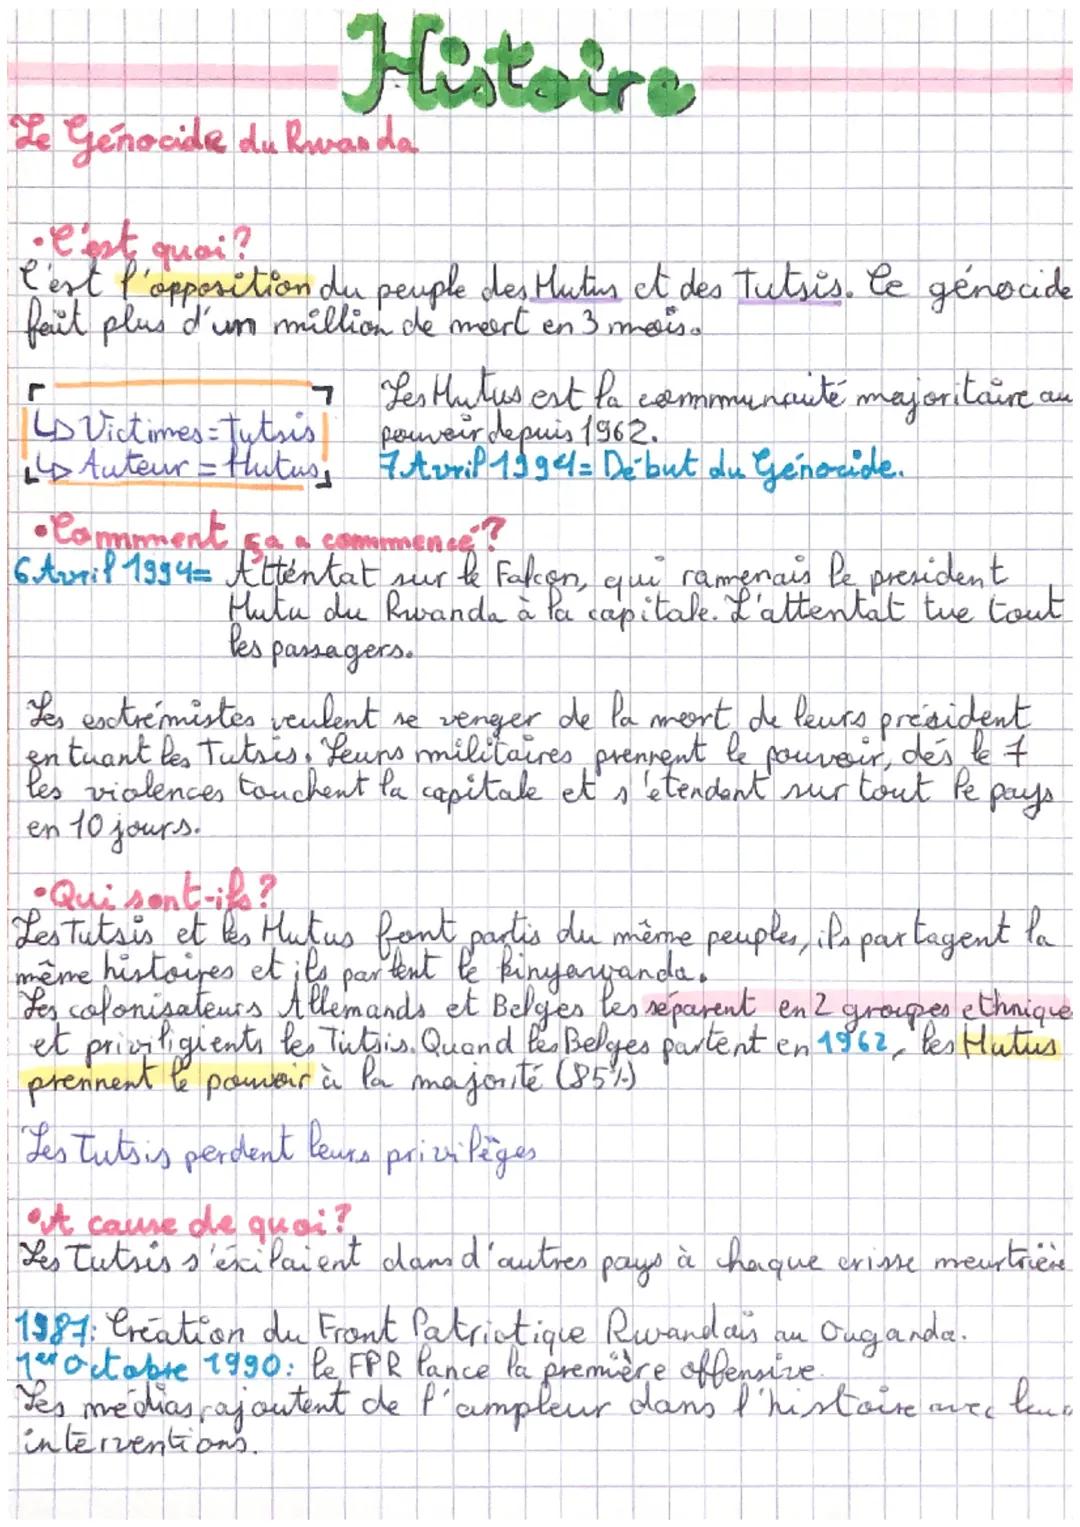 Histoire
Le Génocide du Rwanda
• C'est quoi?
C'est l'opposition du peuple des Hutus et des Tutsis. Ce génocide
fait plus d'un million de mort en 3 mois.
↳ Victimes = Tutsis
↳ Auteur = Hutus
Les Hutus est la commmunauté majoritaire au
pouvoir depuis 1962.
7 Avril 1994 = Début du Génocide.
• Commment ça a commmencé?
6 Avril 1994 = Atténtat sur le Falcon, qui ramenais le president
Hutu du Rwanda à la capitale. L'attentat tue tout
les passagers.
Les esctrémistes veulent se venger de la mort de leurs président
en tuant les Tutsis. Leurs militaires prennent le pouvoir, dés le 7
les violences touchent la capitale et s'étendent sur tout le pays
en 10 jours.
• Qui sont-ils?
Les Tutsis et les Hutus font partis du même peuples, ils partagent la
même histoires et ils parlent le kinyarwanda.
Les colonisateurs Allemands et Belges les séparent en 2 groupes ethnique
et priviligients les Tutsis. Quand les Belges partent en 1962, les Hutus
prennent le pouvoir à la majorité (85%)
Les Tutsis perdent leurs privilèges
• A cause de quoi?
Les Tutsis s'éxilaient dans d'autres pays à chaque crisse meurtrière
1987: Création du Front Patriotique Rwandais au Ouganda.
1er Octobre 1990: le FPR lance la première offensive.
Les médias, ajoutent de l'ampleur dans l'histoire avec leur
interventions.